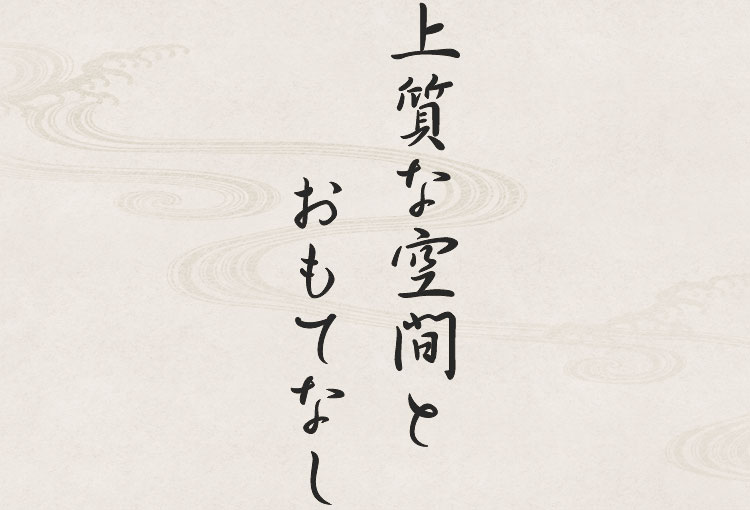 上質な空間と
おもてなし